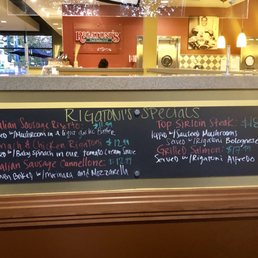 RIGATONI'S
RIGATONI'S SPECIALS
Italian Sausage
w/Mushrooms in a garlic butter
& Chicken Rigatoni $12.99
w/Baby Spinach in our tomato cream sauce
Italian Sausage Cannellone $12.99
Oven Baked w/Marinara and Mozzarella
Top Sirloin Steak $18
w/Sauteed Mushrooms
w/Rigatoni Bolognese
Grilled Salmon
Served w/Rigatoni Alfredo